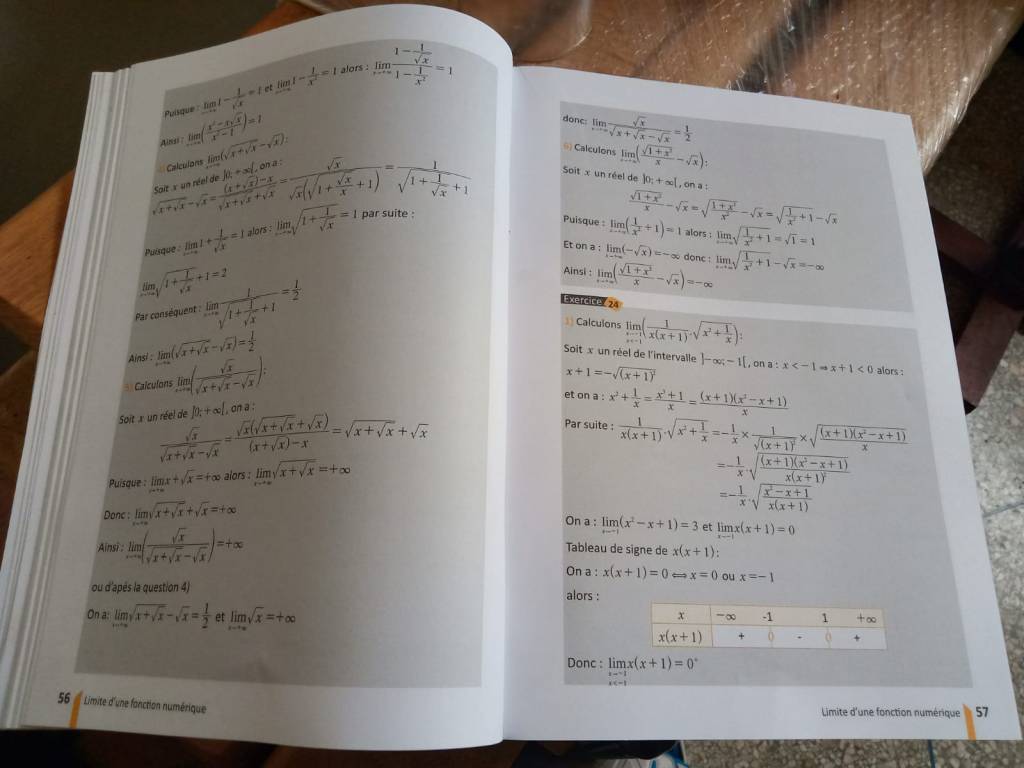 Puisque : lim_{x→+∞} 1 − 1/√x = 1 et lim_{x→+∞} 1 − 1/x² = 1 alors : lim_{x→+∞} (1 − 1/√x)/(1 − 1/x²) = 1
Ainsi : lim_{x→+∞} ((x² − x√x)/(x² − 1)) = 1
4) Calculons lim_{x→+∞} (√(x+√x) − √x) :
Soit x un réel de ]0; +∞[, on a :
√(x+√x) − √x = ((x+√x) − x)/(√(x+√x) + √x) = √x/(√x(√(1 + √x/x) + 1)) = 1/(√(1 + 1/√x) + 1)
Puisque : lim_{x→+∞} 1 + 1/√x = 1 alors : lim_{x→+∞} √(1 + 1/√x) = 1 par suite :
lim_{x→+∞} √(1 + 1/√x) + 1 = 2
Par conséquent : lim_{x→+∞} 1/(√(1 + 1/√x) + 1) = 1/2
Ainsi : lim_{x→+∞} (√(x+√x) − √x) = 1/2
5) Calculons lim_{x→+∞} (√x/(√(x+√x) − √x)) :
Soit x un réel de ]0; +∞[, on a :
√x/(√(x+√x) − √x) = √x(√(x+√x) + √x)/((x+√x) − x) = √(x+√x) + √x
Puisque : lim_{x→+∞} x + √x = +∞ alors : lim_{x→+∞} √(x+√x) = +∞
Donc : lim_{x→+∞} √(x+√x) + √x = +∞
Ainsi : lim_{x→+∞} (√x/(√(x+√x) − √x)) = +∞
ou d'apés la question 4)
On a: lim_{x→+∞} √(x+√x) − √x = 1/2 et lim_{x→+∞} √x = +∞
56 Limite d'une fonction numérique
donc: lim_{x→+∞} √x/(√(x+√x) − √x) = 1/2
6) Calculons lim_{x→+∞} (√(1+x²)/x − √x) :
Soit x un réel de ]0; +∞[, on a :
√(1+x²)/x − √x = √((1+x²)/x²) − √x = √(1/x² + 1) − √x
Puisque : lim_{x→+∞} (1/x² + 1) = 1 alors : lim_{x→+∞} √(1/x² + 1) = √1 = 1
Et on a : lim_{x→+∞} (−√x) = −∞ donc : lim_{x→+∞} √(1/x² + 1) − √x = −∞
Ainsi : lim_{x→+∞} (√(1+x²)/x − √x) = −∞
Exercice 24
1) Calculons lim_{x→−1, x<−1} (1/(x(x+1)) · √(x² + 1/x)) :
Soit x un réel de l'intervalle ]−∞; −1[, on a : x < −1 ⇒ x + 1 < 0 alors :
x + 1 = −√((x+1)²)
et on a : x² + 1/x = (x³ + 1)/x = (x+1)(x² − x + 1)/x
Par suite : 1/(x(x+1)) · √(x² + 1/x) = −1/x × 1/√((x+1)²) × √((x+1)(x² − x + 1)/x)
= −1/x · √((x+1)(x² − x + 1)/(x(x+1)²))
= −1/x · √((x² − x + 1)/(x(x+1)))
On a : lim_{x→−1} (x² − x + 1) = 3 et lim_{x→−1} x(x+1) = 0
Tableau de signe de x(x+1) :
On a : x(x+1) = 0 ⟺ x = 0 ou x = −1
alors :
x −∞ -1 1 +∞
x(x+1) + 0 - 0 +
Donc : lim_{x→−1, x<−1} x(x+1) = 0⁺
Limite d'une fonction numérique 57